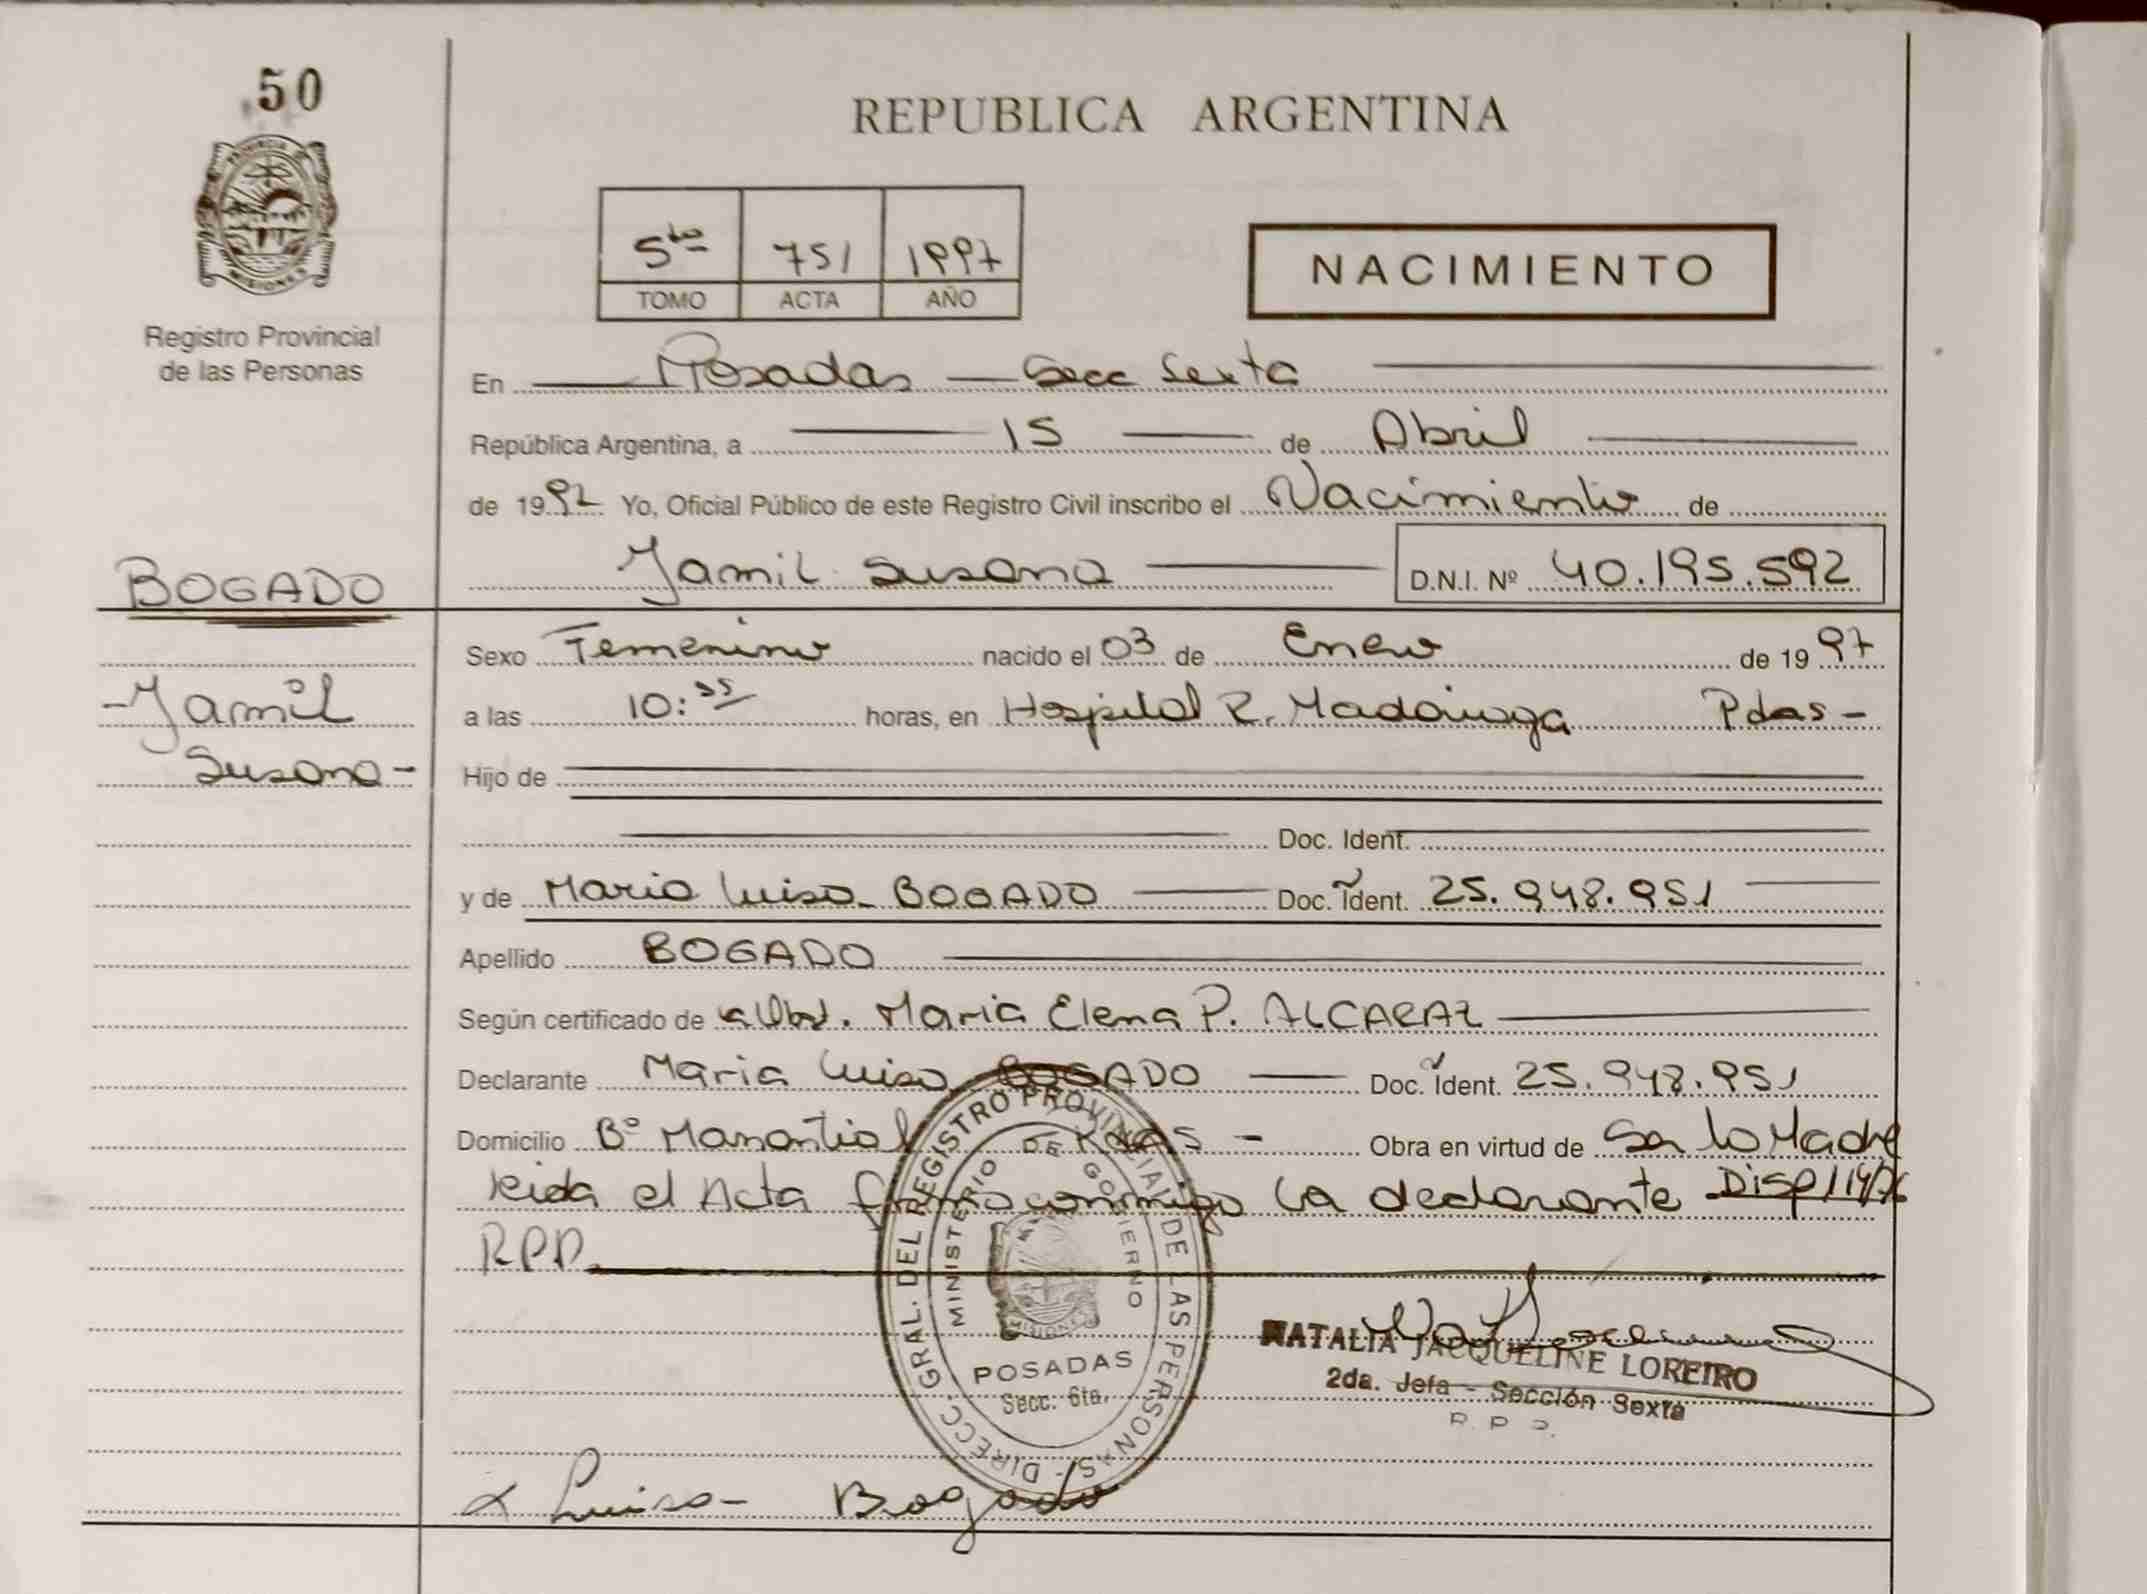 50
REPUBLICA ARGENTINA
PROVINCIA DE
MISIONES
Registro Provincial
de las Personas
5to 751 1997
TOMO ACTA AÑO
NACIMIENTO
En Posadas - Secc Sexta
República Argentina, a 15 de Abril
de 1992 Yo, Oficial Público de este Registro Civil inscribo el Nacimiento de
Yamil Susana D.N.I. Nº 40.195.592
BOGADO
Yamil
Susana-
Sexo Femenino nacido el 03 de Enero de 1997
a las 10:35 horas, en Hospital R. Madariaga Pdas-
Hijo de
Doc. Ident.
y de Maria Luisa BOGADO Doc. Ident. 25.948.951
Apellido BOGADO
Según certificado de Maria Elena P. ALCARAZ
Declarante Maria Luisa BOGADO Doc. Ident. 25.948.951
Domicilio Bº Manantial Pdas - Obra en virtud de Ser la Madre
leida el Acta firma conmigo la declarante Disp 114/96
RPP.
DIRECC. GRAL. DEL REGISTRO PROVINCIAL DE LAS PERSONAS -
MINISTERIO DE GOBIERNO
MISIONES
POSADAS
Secc: 6ta.
NATALIA JACQUELINE LOREIRO
2da. Jefa - Sección Sexta
R. P. P.
x Luisa- Bogado